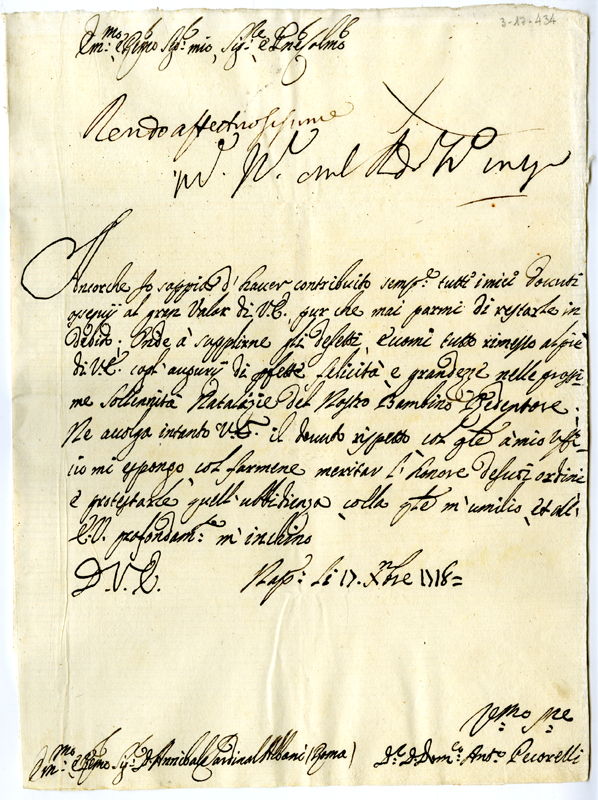 3-17-434
Em.mo e Rev.mo Sig.r mio, Sig.re e P.ne Col.mo
Rendo affettuosissime
Ancorche Io sappia d'hauer contribuito semp.e tutti i miei douuti
ossequij al gran Valor di V.E. pur che mai parmi di restarle in
Debito. Onde à supplirne gli defetti, tutto rimesso
di V.E. cogl'augurij di felicità e grandezze nelle prossi-
me sollennità Natalizie del Nostro Bambino Redentore.
Ne accolga intanto V.E. il douuto rispetto col q.le à mio Vffi-
cio mi espongo col farmene meritar l'honore de suoi ordini
e protestarle quell'ubbidienza colla q.le m'umilio, et all'
E.V. profondam.te m'inchino
D.V.E. Nap.i li 17. Xbre 1718=
Em.mo e Rev.mo Sig.r D. Annibale Cardinal Albani (Roma)
D.r D. Dom.co Ant.o Pecorelli